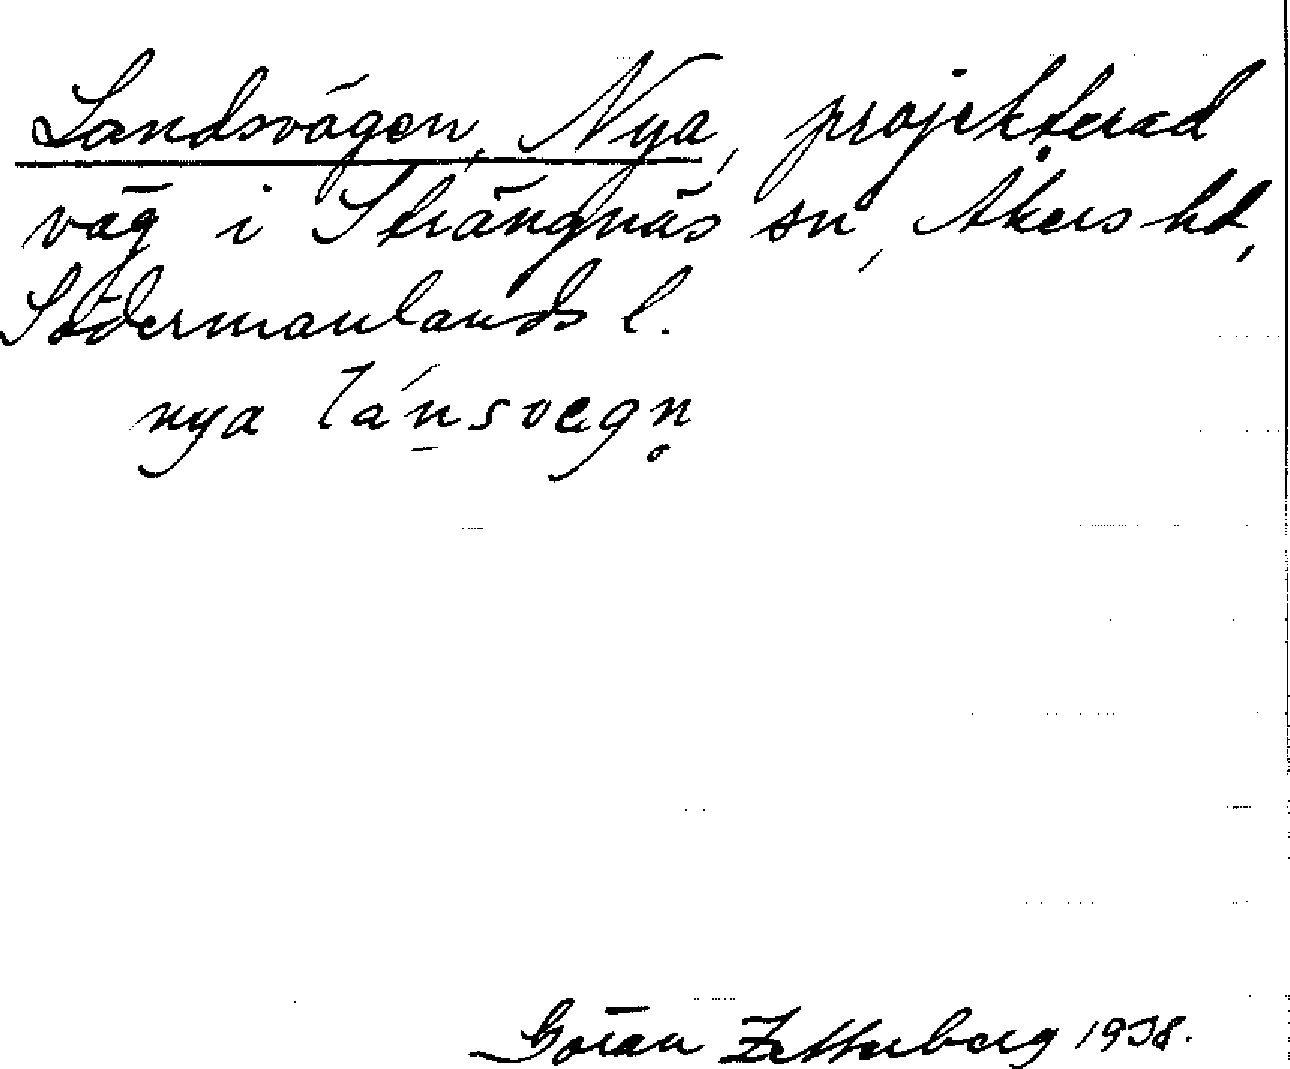 Landsvägen, Nya, projekterad
väg i Strängnäs sn, Åkers hd,
Södermanlands l.
nya lánsvęgn̥
Göran Zetterberg 1938.